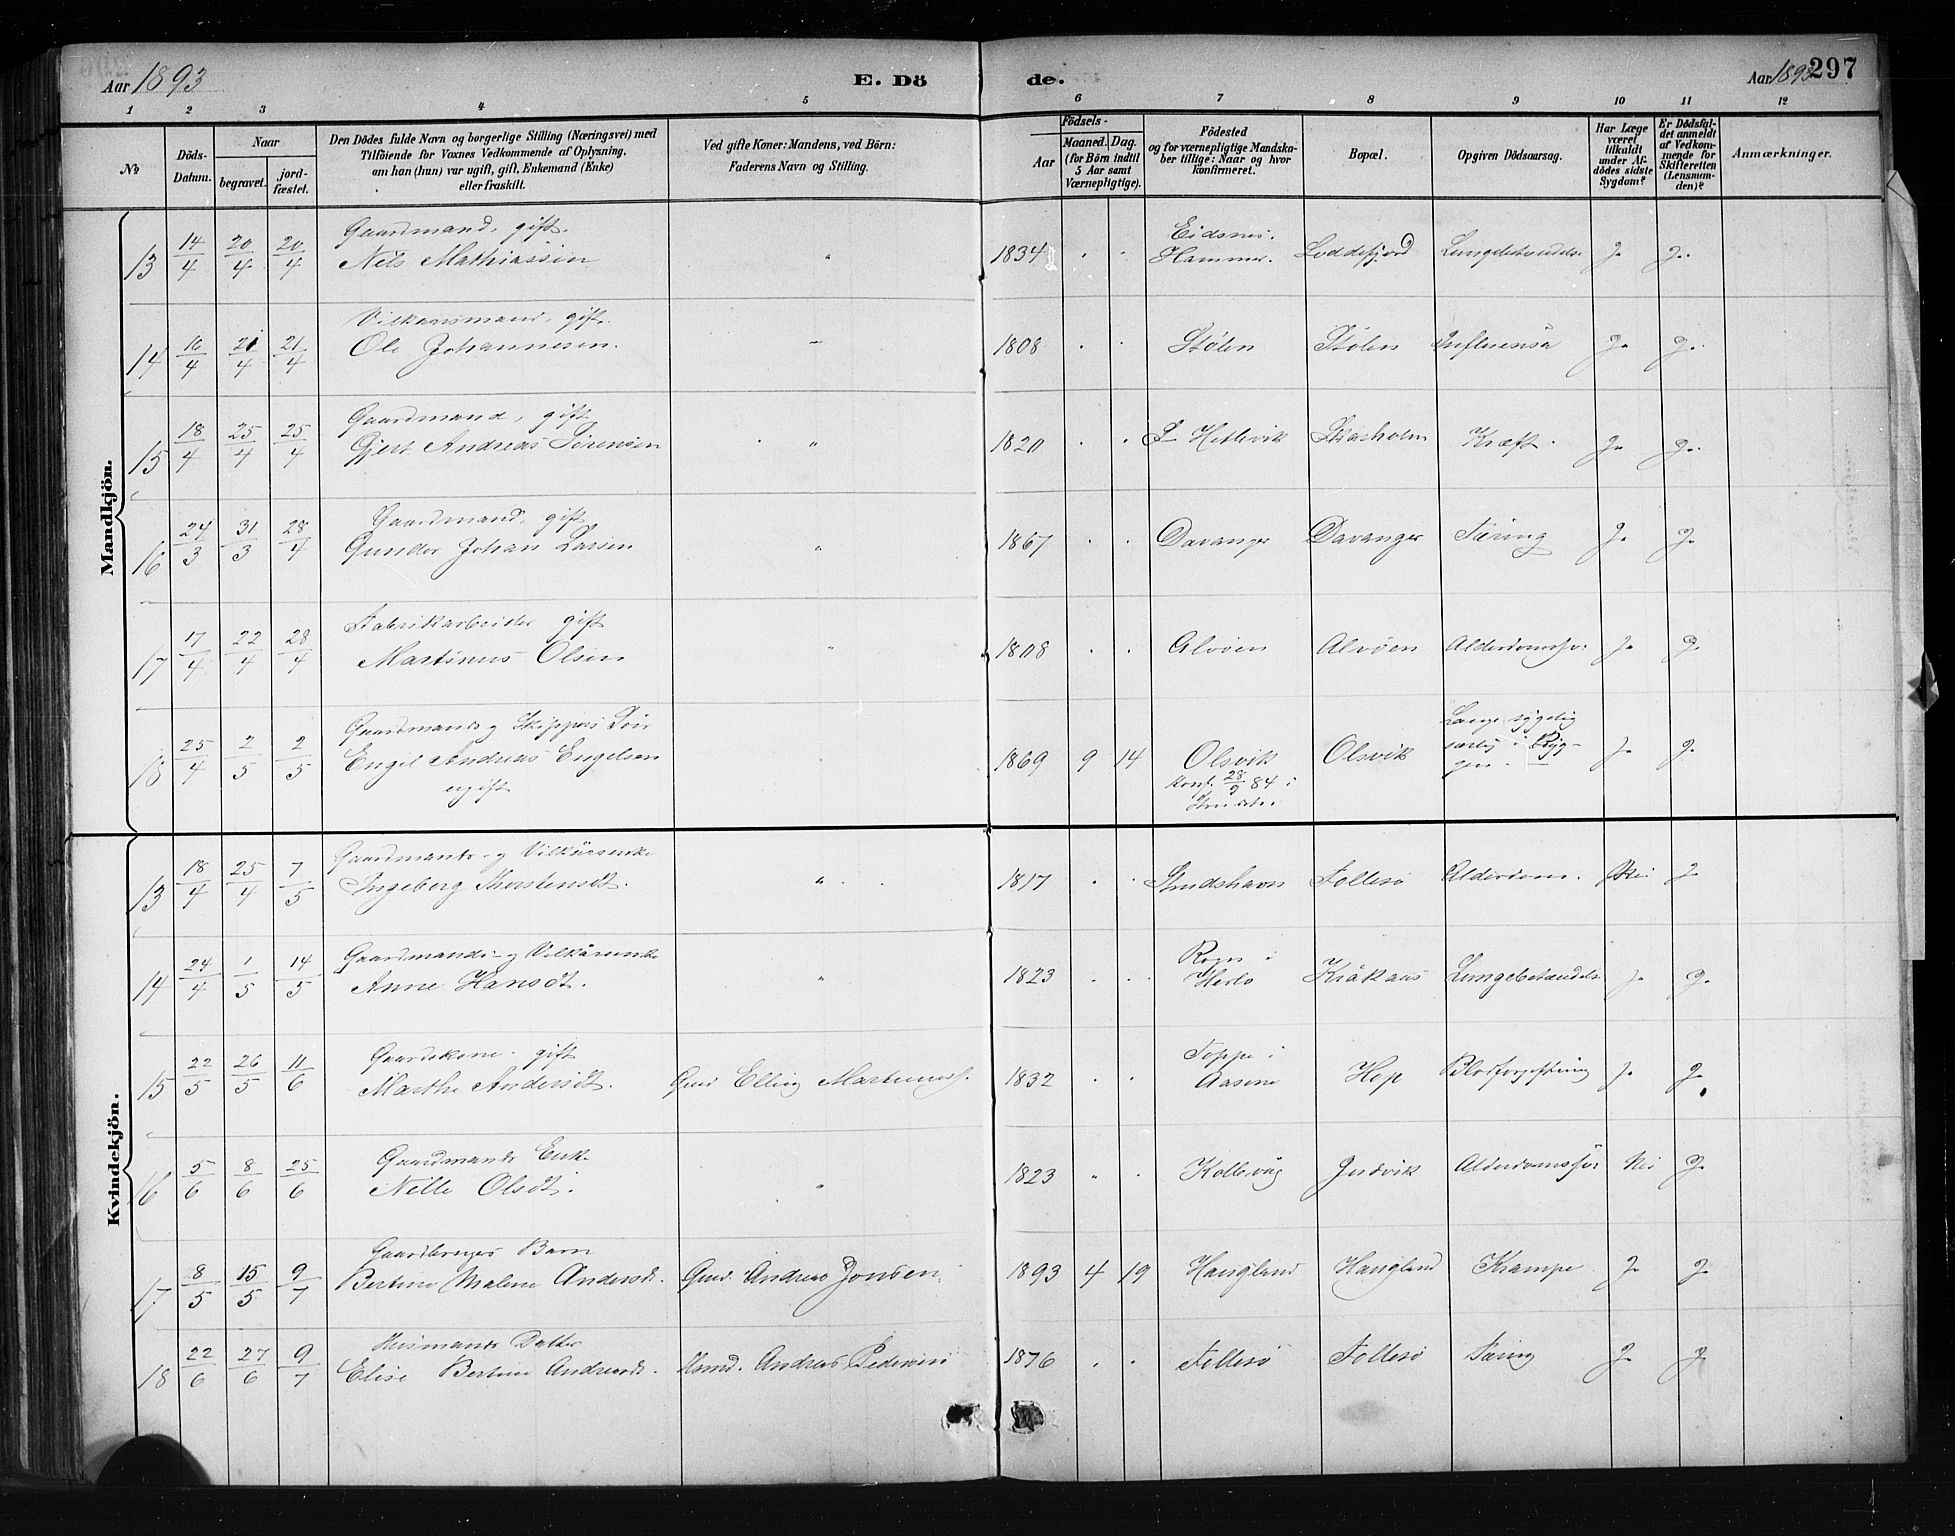 Aar 1893
E. Dö
de.
Aar 1893
297
1 2 3 4 5 6 7 8 9 10 11 12
No
Döds-Datum.
Naar
begravet.
jordfæstet.
Den Dödes fulde Navn og borgerlige Stilling (Næringsvei) med
Tilföiende for Voxnes Vedkommende af Oplysning,
om han (hun) var ugift, gift, Enkemand (Enke)
eller fraskilt.
Ved gifte Koner: Mandens, ved Börn:
Faderens Navn og Stilling.
Födsels-
Aar
Maaned. Dag.
(for Börn indtil
5 Aar samt
Værnepligtige).
Födested
og for værnepligtige Mandskaber
tillige: Naar og hvor
konfirmeret.
Bopæl.
Opgiven Dödsaarsag.
Har Læge
været
tilkaldt
under Afdödes
sidste
Sygdom?
Er Dödsfaldet
anmeldt
af Vedkommende
for
Skifteretten
(Lensmanden)?
Anmærkninger.
Mandkjön.
Gaardmand, gift. Eidsnes.
13 14/4 20/4 20/4 Nels Mathiassen " 1834 Hammer. Loddefjord Ja Ja.
Vilkaarsmand, gift.
14 16/4 21/4 21/4 Ole Johannesen. " 1808 Stölen Stölen Influensa Ja Ja.
Gaardmand, gift
15 18/4 25/4 25/4 Gjert Andreas Sörensen " 1820 Hetlevik Skarholm Kræft. Ja Ja.
Gaardmand, gift
16 24/3 31/3 28/4 Gunder Johan Larsen " 1867 Davanger Davanger Tæring Ja Ja
Fabrikarbeider gift
17 17/4 22/4 28/4 Martinus Olsen " 1808 Alvöen Alvöen Ja Ja
Gaardmands og Skippers Sön Lange sygelig
18 25/4 2/5 2/5 Engel Andreas Engelsen 1869 9 14 Olsvik Olsvik særlig i Ryg- Ja Ja
ugift konf. 28/9 84 i gen.
Kvindekjön.
Gaardmands- og Vilkårsenke
13 18/4 25/4 7/5 Ingeborg Thorstensdt. " 1817 Follesö Alderdom. Nei Ja
Gaardmands- og Vilkårsenke
14 24/4 1/5 14/5 Anne Hansdt. " 1823 Herlö Kråkaas Ja Ja
Gaardskone. gift Toppe i
15 22/5 26/5 11/6 Marthe Andersdt. Gmd Elling 1832 Aasene Hop Blodforgiftning Ja Ja
Gaardmands Enke
16 5/6 8/6 25/6 Nille Olsdt. " 1823 " Kollevåg Indvik Nei Ja
Gaardbrugers Barn
17 8/5 15/5 9/7 Bertine Malene Andersdt. Gmd. Andreas Jonsen 1893 4 19 Haugland Haugland Krampe Ja Ja
Husmands Datter
18 22/6 27/6 9/7 Elise Bertine Andreasdt. Hsmd. Andreas Pedersen 1876 Follesö Follesö Tæring Ja Ja